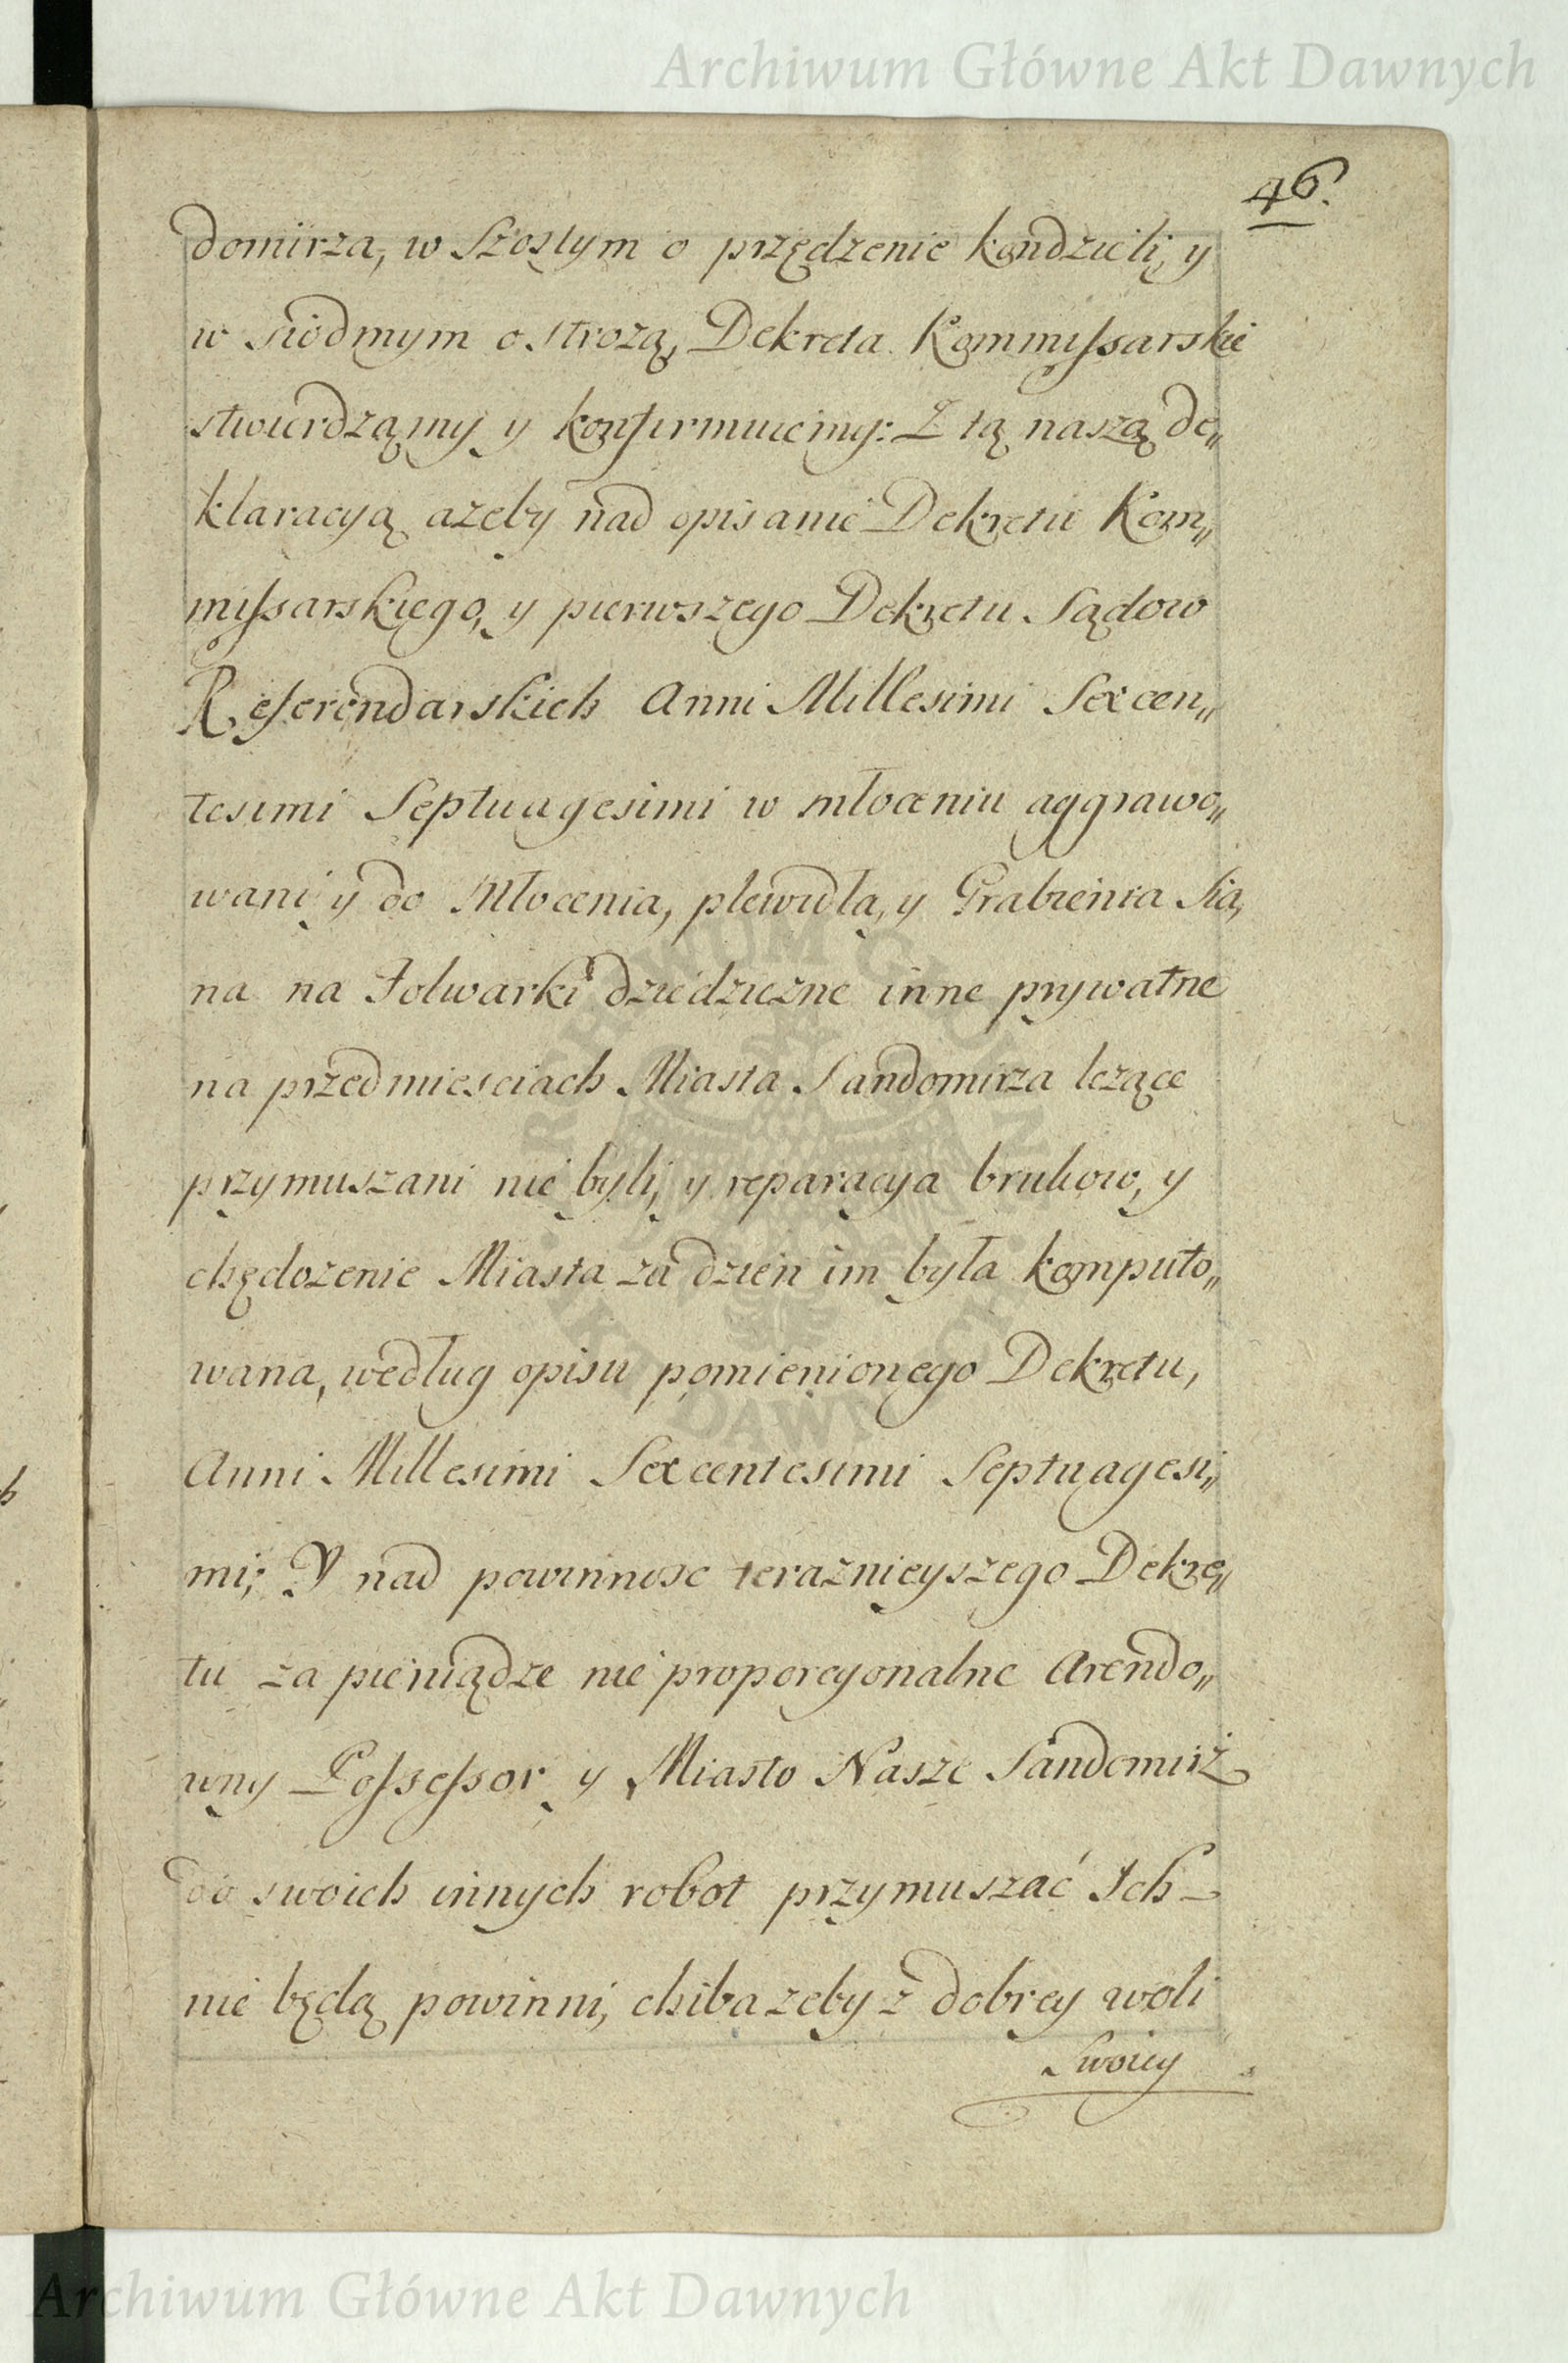 Archiwum Główne Akt Dawnych
46.
domirza, w Szostym o przędzenie kondzieli, y
w siodmym o strożą, Dekreta Kommissarskie
stwierdzamy y konfirmuiemy: Z tą naszą de„
klaracyą ażeby nad opisanie Dekretu Kom„
missarskiego, y pierwszego Dekretu Sądow
Referendarskich Anni Millesimi Sexcen„
tesimi Septuagesimi w młoceniu aggrawo„
wani y do Młocenia, plewidła, y Grabienia Sia,
na na Folwarki dziedziczne inne prywatne
na przedmiesciach Miasta Sandomirza leżące
przymuszani nie byli, y reparacya brukow, y
chędożenie Miasta za dzień im była komputo„
wana, według opisu pomienionego Dekretu,
Anni Millesimi Sexcentesimi Septuagesi„
mi; Y nad powinnosc teraznieyszego Dekre„
tu za pieniądze nie proporcyonalne Arendo„
wny Possessor y Miasto Nasze Sandomirz
do swoich innych robot przymuszać Ich
nie będą powinni, chiba zeby z dobrey woli
Swoiey
ARCHIWUM GŁÓWNE AKT DAWNYCH
Archiwum Główne Akt Dawnych